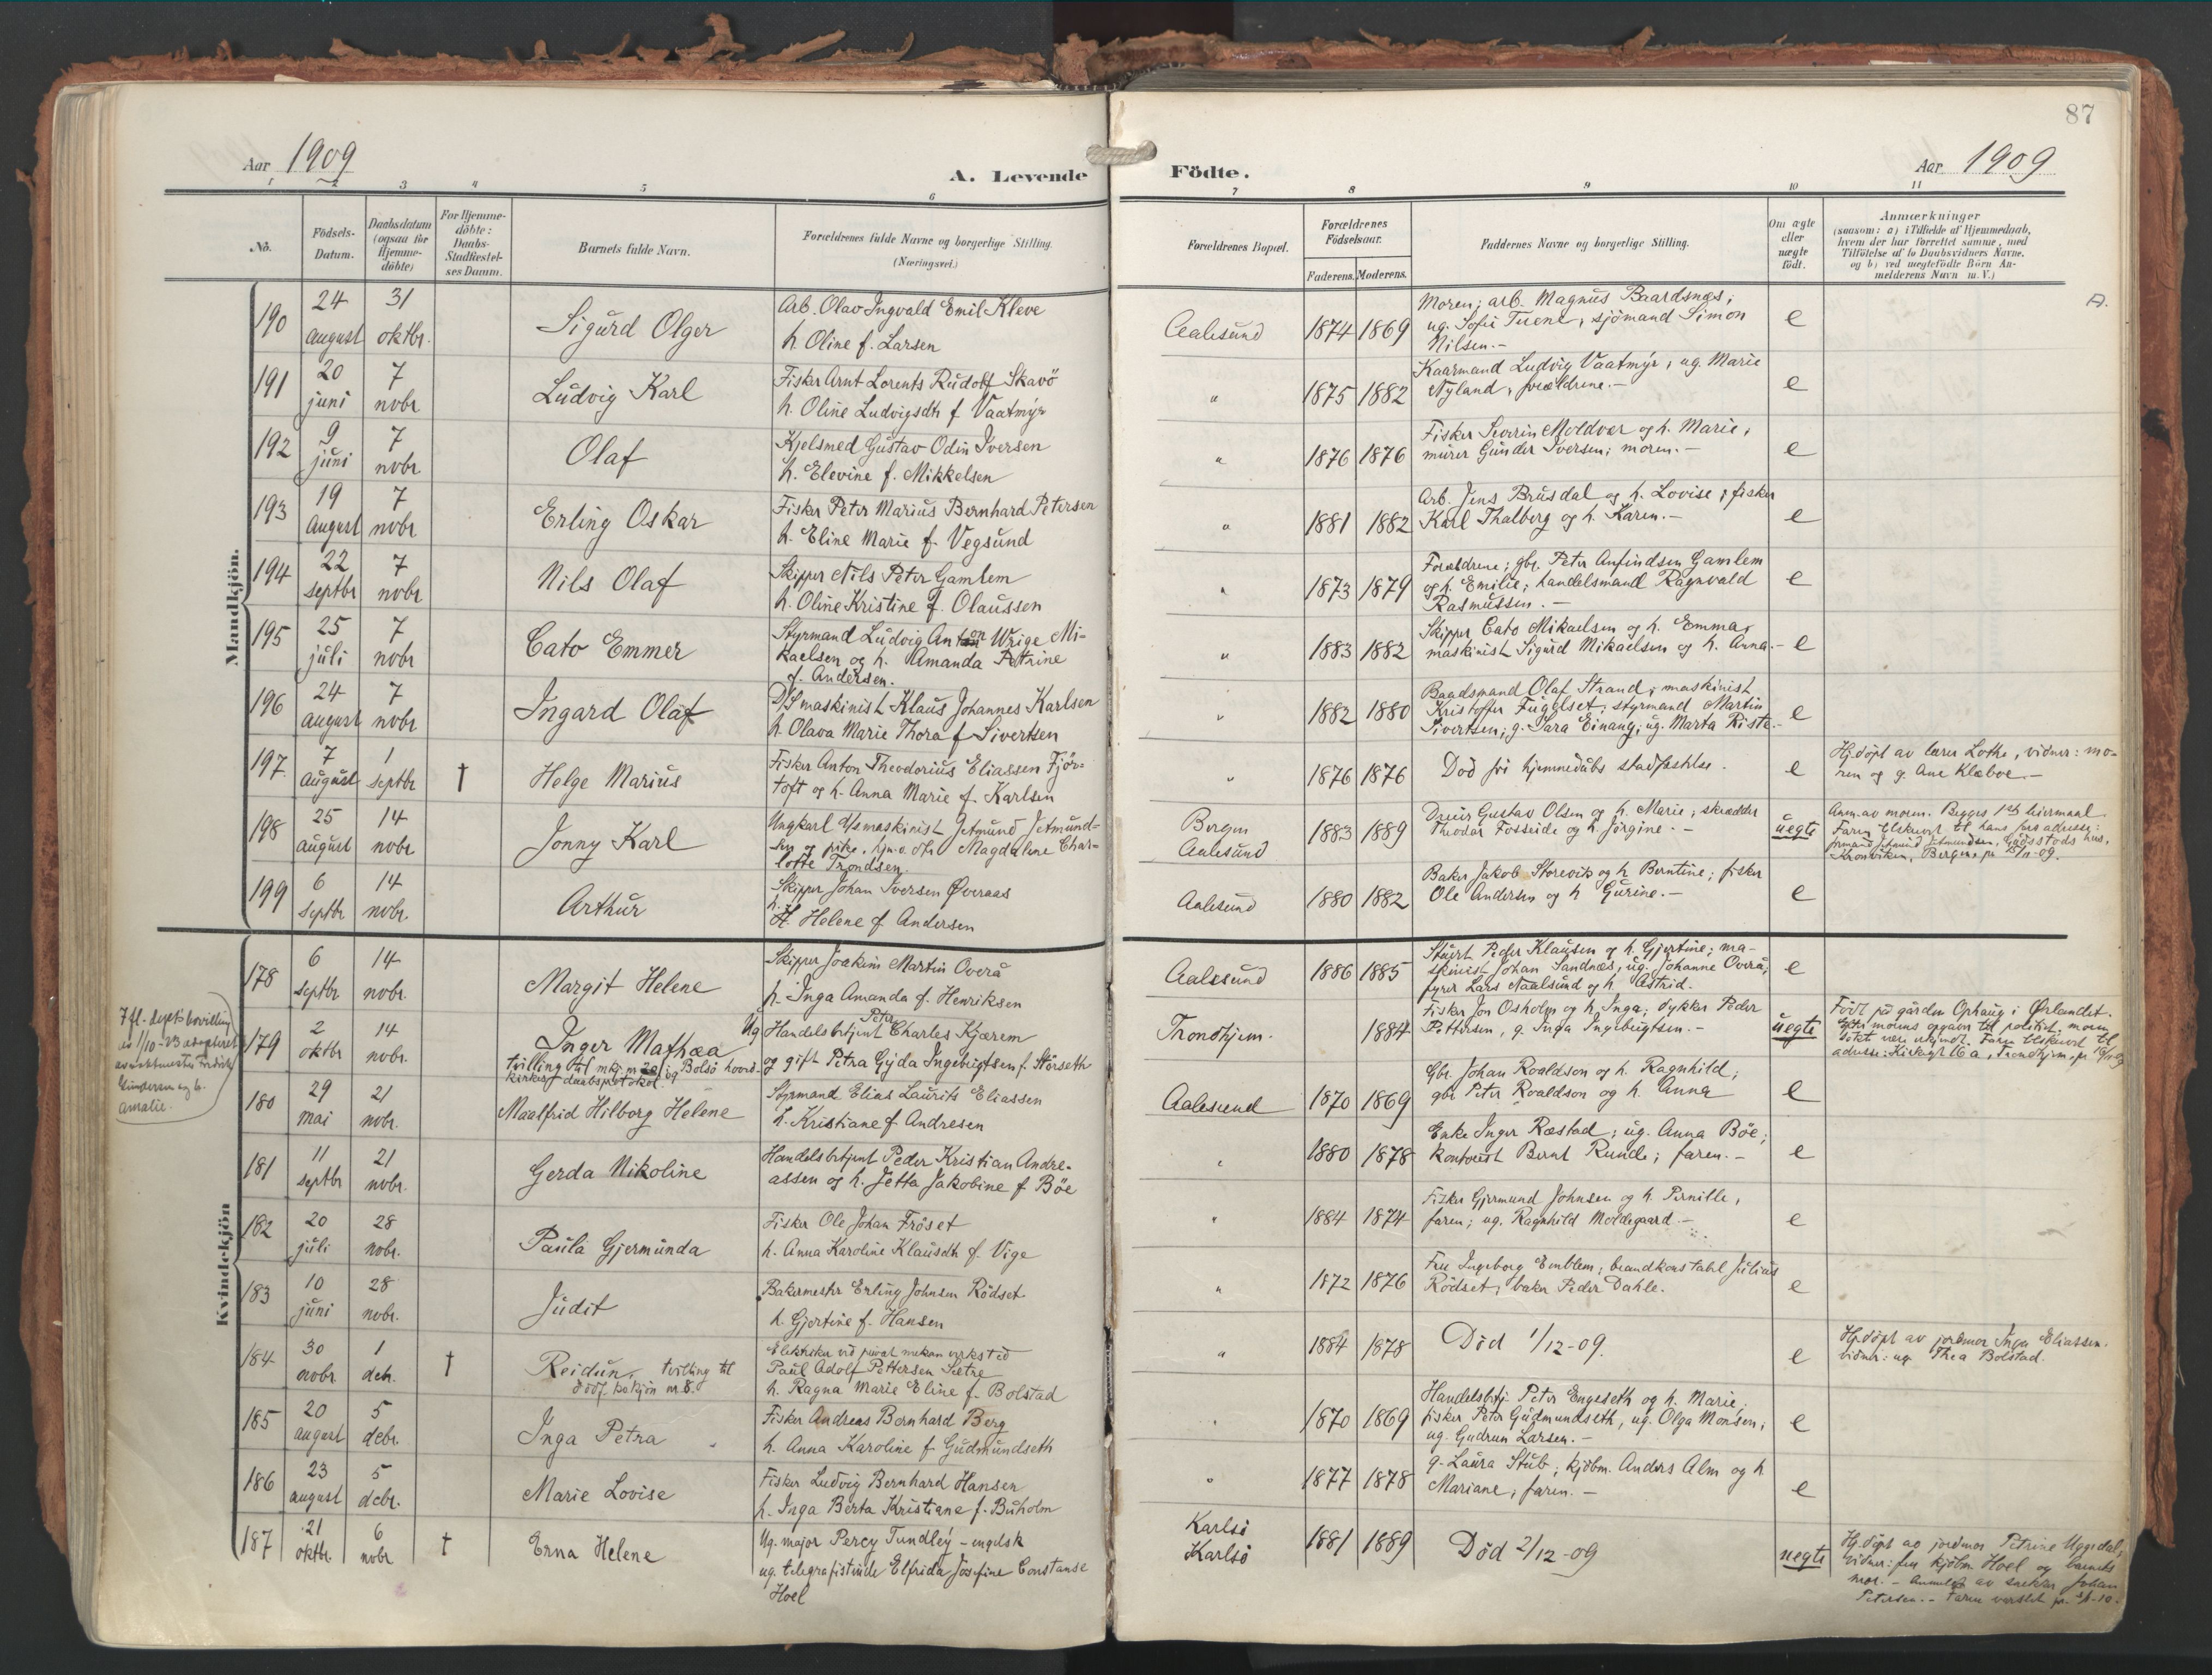 87
Aar 1909
A. Levende Födte.
Aar 1909
1 2 3 4 5 6 7 8 9 10 11
No.
Födsels-
Datum.
Daabsdatum
(ogsaa for
Hjemme-
döbte)
For Hjemme-
döbte:
Daabs-
Stadfæstel-
ses Datum.
Barnets fulde Navn.
Forældrenes fulde Navne og borgerlige Stilling.
(Næringsvei.)
Forældrenes Bopæl.
Forældrenes
Födselsaar.
Faderens. Moderens.
Faddernes Navne og borgerlige Stilling.
Om ægte
eller
uægte
födt.
Anmærkninger
(saasom: a) i Tilfælde af Hjemmedaab,
hvem der har forrettet samme, med
Tilföielse af to Daabsvidners Navne.
og b) ved uægtefödte Börn An-
melderens Navn m. V.)
Mandkjön.
190
24 august
31 oktbr.
Sigurd Olger
Arb. Olav Ingvald Emil Kleve
h. Oline f. Larsen
Aalesund
1874 1869
Moren; arb. Magnus Baardsnæs;
ug. Sofie Tuene, sjömand Simon
Nilsen.-
e
191
20 juni
7 nobr
Ludvig Karl
Fisker Arnt Lorents Rudolf Skavö
h. Oline Ludvigsdtr f. Vaatmyr
"
1875 1882
Kaarmand Ludvig Vaatmyr, ug. Marie
Nyland, forældrene.-
e
192
9 juni
7 nobr
Olaf
Kjelsmed Gustav Odin Iversen
h. Elevine f. Mikkelsen
"
1876 1876
Fisker Severin Moldvær og h. Marie,
murer Gunder Iversen; moren.-
e
193
19 august
7 nobr
Erling Oskar
Fisker Peter Marius Bernhard Petersen
h. Eline Marie f. Vegsund
"
1881 1882
Arb. Jens Brusdal og h. Lovise; fisker
Karl Thalberg og h. Karen.-
e
194
22 septbr
7 nobr
Nils Olaf
Skipper Nils Peter Gamlem
h. Oline Kristine f. Olaussen
"
1873 1879
Forældrene; gbr. Peter Anfindsen Gamlem
og h. Emilie; handelsmand Ragnvald
Rasmussen.-
e
195
25 juli
7 nobr
Cato Emmer
Styrmand Ludvig Anton Wrige Mi-
kaelsen og h. Amanda Petrine
f. Andersen.
"
1883 1882
Skipper Cato Mikaelsen og h. Emma,
maskinist Sigurd Mikaelsen og h. Anna.-
e
196
24 august
7 nobr
Ingard Olaf
D/S maskinist Klaus Johannes Karlsen
h. Olava Marie Thora f Sivertsen
"
1882 1880
Baadsmand Olaf Strand; maskinist
Kristoffer Fuglset; styrmand Martin
Sivertsen; g. Sara Einang; ug. Marta Riste.-
e
197
7 august
1 septbr
†
Helge Marius
Fisker Anton Theodorius Eliassen Fjör-
toft og h. Anna Marie f. Karlsen
"
1876 1876
Död för hjemmedåbs stadfæstelse.
e
Hj.döpt av lærer Lothe, vidner: mo-
ren og g. Ane Klæboe.-
198
25 august
14 nobr
Jonny Karl
Ungkarl d/s maskinist Jetmund Jetmund-
sen og pike Magdalene Char-
lotte Trondsen.
Bergen
Aalesund
1883 1889
Dreier Gustav Olsen og h. Marie, skrædder
Theodor Fosseide og h. Jörgine.-
uegte
Anm. av moren. Begges 1ste leiermaal
Faren tilskrevet til hans fars adresse:
formand Jetmund Jetmundsen, hus,
Bergen, 15/11-09.
199
6 septbr
14 nobr.
Arthur
Skipper Johan Iversen Øveraas
h. Helene f. Andersen
Aalesund
1880 1882
Baker Jakob Storevik og h Berntine; fisker
Ole Andersen og h Gurine.-
e
Kvindekjön
178
6 septbr
14 nobr.
Margit Helene
Skipper Joakim Martin Overå
h. Inga Amanda f. Henriksen
Aalesund
1886 1885
Stuert Peder Klausen og h. Gjertine; ma-
skinist Johan Sandnæs, ug. Johanne Overå,
fyrer Lars Naalsund og h. Astrid.
e
179
2 oktbr
14 nobr.
Inger Mathea
tvilling til mkj. nr 201 i Bolsö hoved-
kirkes daabsprotokol.
Ug Handelsbetjent Peter Charles Kjærem
og gift Petra Gyda Ingebrigtsen f. Störseth
Trondhjem.
1884
Fisker Jon Osholm og h. Inga; dykker Peder
Pettersen, g. Inga Ingebrigtsen.-
uegte
Född på gården Ophaug i Ørlandet.
Efter morens opgave til politiet. moren
Faren tilskrevet til
adresse: Kirkegt 16 a, Trondhjem, pr 16/11-09
7 fl.
1/10-23 adopteret
Gundersen og h.
Amalie.
180
29 mai
21 nobr.
Maalfrid Hilborg Helene
Styrmand Elias Laurits Eliassen
h. Kristiane f. Andresen
Aalesund
1870 1869
Gbr. Johan Roaldson og h. Ragnhild;
gbr Peter Roaldson og h. Anna
e
181
11 septbr
21 nobr.
Gerda Nikoline
Handelsbetjent Peder Kristian Andre-
assen og h. Jetta Jakobine f Böe
"
1880 1878
Enke Inger Ræstad; ug. Anna Böe;
kontorist Bernt Runde; faren.-
e
182
20 juli
28 nobr.
Paula Gjermunda
Fisker Ole Johan Fröset
h. Anna Karoline Klausdtr f. Vige
"
1884 1874
Fisker Gjermund Johnsen og h. Pernille,
faren; ug. Ragnhild Moldegaard.-
e
183
10 juni
28 nobr.
Judit
Bakermester Erling Johnsen Rödset
h. Gjertine f. Hansen
"
1872 1876
Fru Ingeborg Emblem; brandkonstabel Julius
Rödset, baker Peder Dahle.
e
184
30 nobr
1 deb.
†
Reidun, tvilling til
dödf. kvkjön nr. 8.
Elektriker ved privat mekan verksted
Paul Adolf Pettersen Sætre
h. Ragna Marie Eline f. Bolstad
"
1884 1878
Död 1/12-09.
e
Hj.döpt av jordmor Inga Eliassen.
vidner: ug. Thea Bolstad.
185
20 august
5 debr.
Inga Petra
Fisker Andreas Bernhard Berg
h. Anna Karoline f Gudmundseth
"
1870 1869
Handelsbetj. Peter Engeseth og h. Marie,
fisker Peter Gudmundseth, ug. Olga Monsen;
ug. Gudrun Larsen.-
e
186
23 august
5 debr.
Marie Lovise
Fisker Ludvig Bernhard Hansen
h. Inga Berta Kristiane f. Buholm
"
1877 1878
g. Laura Stub; kjöbm. Anders Alm og h
Mariane; faren.-
e
187
21 oktbr.
6 nobr
†
Erna Helene
Ug. major Percy Tundley - engelsk
ug. telegrafistinde Elfrida Josefine Constanse
Hoel
Karlsö
Karlsö
1881 1889
Död 2/12-09
uegte
Hj.döpt av jordmor Petrine Uggedal;
vidner: fru kjöbm. Hoel og barnets
mor. - Anmeldt av snekker Johan
Petersen.- Faren varslet pr.